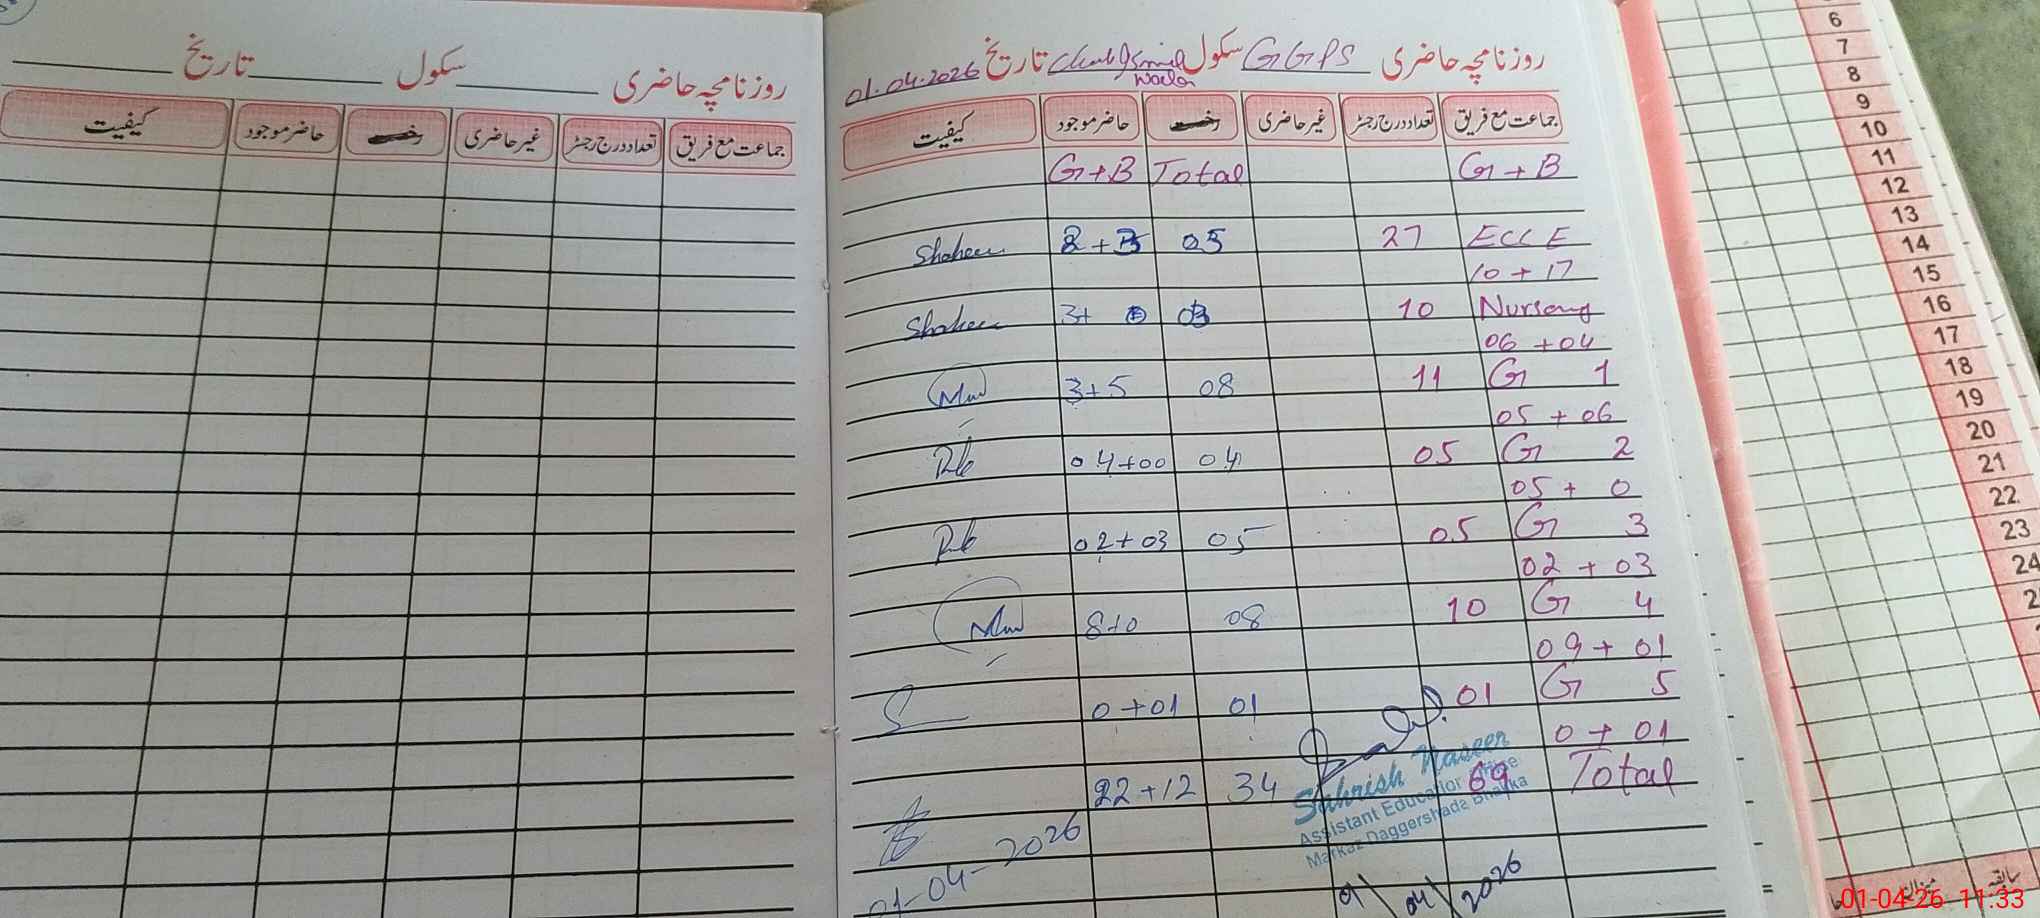 روزنامچہ حاضری ________ سکول ________ تاریخ ________
جماعت مع فریق تعداد درج رجسٹر غیر حاضری رخصت حاضر موجود کیفیت
روزنامچہ حاضری GGPS سکول تاریخ 01.04.2026
Wala
جماعت مع فریق تعداد درج رجسٹر غیر حاضری رخصت حاضر موجود کیفیت
G+B Total G+B
Shaheen 2+3 05 27 ECCE
10+17
Shaheen 3+ 03 10
06+04
3+5 08 11 G 1
05+06
04+00 04 05 G 2
05+0
02+03 05 05 G 3
02+03
8+0 08 10 G 4
09+01
0+01 01 01 G 5
0+01
22+12 34 69 Total
01-04-2026
Assistant Education
Markaz Daggershada
01/04/2026
6
7
8
9
10
11
12
13
14
15
16
17
18
19
20
21
22
23
24
میزان سابقہ
01-04-26 11:33